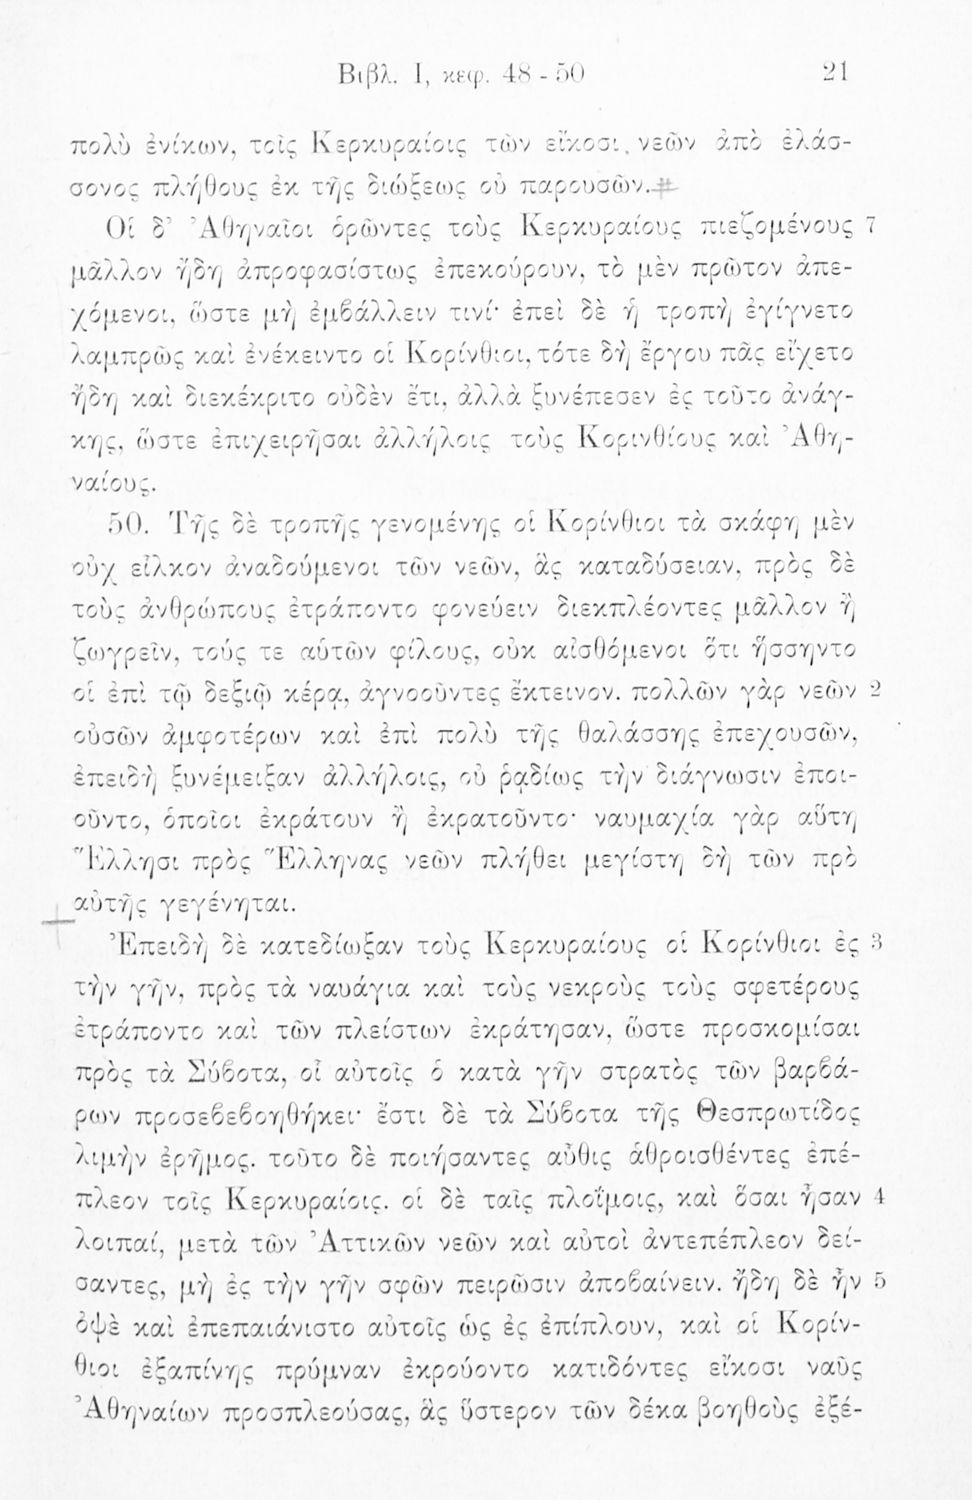 Βιβλ. I, κεφ. 48 - 50 21
πολὺ ἐνίκων, τοῖς Κερκυραίοις τῶν εἴκοσι νεῶν ἀπὸ ἐλάσ-
σονος πλήθους ἐκ τῆς διώξεως οὐ παρουσῶν.
Οἱ δ' Ἀθηναῖοι ὁρῶντες τοὺς Κερκυραίους πιεζομένους 7
μᾶλλον ἤδη ἀπροφασίστως ἐπεκούρουν, τὸ μὲν πρῶτον ἀπε-
χόμενοι, ὥστε μὴ ἐμβάλλειν τινί· ἐπεὶ δὲ ἡ τροπὴ ἐγίγνετο
λαμπρῶς καὶ ἐνέκειντο οἱ Κορίνθιοι, τότε δὴ ἔργου πᾶς εἴχετο
ἤδη καὶ διεκέκριτο οὐδὲν ἔτι, ἀλλὰ ξυνέπεσεν ἐς τοῦτο ἀνάγ-
κης, ὥστε ἐπιχειρῆσαι ἀλλήλοις τοὺς Κορινθίους καὶ Ἀθη-
ναίους.
50. Τῆς δὲ τροπῆς γενομένης οἱ Κορίνθιοι τὰ σκάφη μὲν
οὐχ εἷλκον ἀναδούμενοι τῶν νεῶν, ἃς καταδύσειαν, πρὸς δὲ
τοὺς ἀνθρώπους ἐτράποντο φονεύειν διεκπλέοντες μᾶλλον ἢ
ζωγρεῖν, τούς τε αὑτῶν φίλους, οὐκ αἰσθόμενοι ὅτι ἥσσηντο
οἱ ἐπὶ τῷ δεξιῷ κέρᾳ, ἀγνοοῦντες ἔκτεινον. πολλῶν γὰρ νεῶν 2
οὐσῶν ἀμφοτέρων καὶ ἐπὶ πολὺ τῆς θαλάσσης ἐπεχουσῶν,
ἐπειδὴ ξυνέμειξαν ἀλλήλοις, οὐ ῥᾳδίως τὴν διάγνωσιν ἐποι-
οῦντο, ὁποῖοι ἐκράτουν ἢ ἐκρατοῦντο· ναυμαχία γὰρ αὕτη
Ἕλλησι πρὸς Ἕλληνας νεῶν πλήθει μεγίστη δὴ τῶν πρὸ
αὐτῆς γεγένηται.
Ἐπειδὴ δὲ κατεδίωξαν τοὺς Κερκυραίους οἱ Κορίνθιοι ἐς 3
τὴν γῆν, πρὸς τὰ ναυάγια καὶ τοὺς νεκροὺς τοὺς σφετέρους
ἐτράποντο καὶ τῶν πλείστων ἐκράτησαν, ὥστε προσκομίσαι
πρὸς τὰ Σύβοτα, οἷ αὐτοῖς ὁ κατὰ γῆν στρατὸς τῶν βαρβά-
ρων προσεβεβοηθήκει· ἔστι δὲ τὰ Σύβοτα τῆς Θεσπρωτίδος
λιμὴν ἐρῆμος. τοῦτο δὲ ποιήσαντες αὖθις ἁθροισθέντες ἐπέ-
πλεον τοῖς Κερκυραίοις. οἱ δὲ ταῖς πλοΐμοις, καὶ ὅσαι ἦσαν 4
λοιπαί, μετὰ τῶν Ἀττικῶν νεῶν καὶ αὐτοὶ ἀντεπέπλεον δεί-
σαντες, μὴ ἐς τὴν γῆν σφῶν πειρῶσιν ἀποβαίνειν. ἤδη δὲ ἦν 5
ὀψὲ καὶ ἐπεπαιάνιστο αὐτοῖς ὡς ἐς ἐπίπλουν, καὶ οἱ Κορίν-
θιοι ἐξαπίνης πρύμναν ἐκρούοντο κατιδόντες εἴκοσι ναῦς
Ἀθηναίων προσπλεούσας, ἃς ὕστερον τῶν δέκα βοηθοὺς ἐξέ-